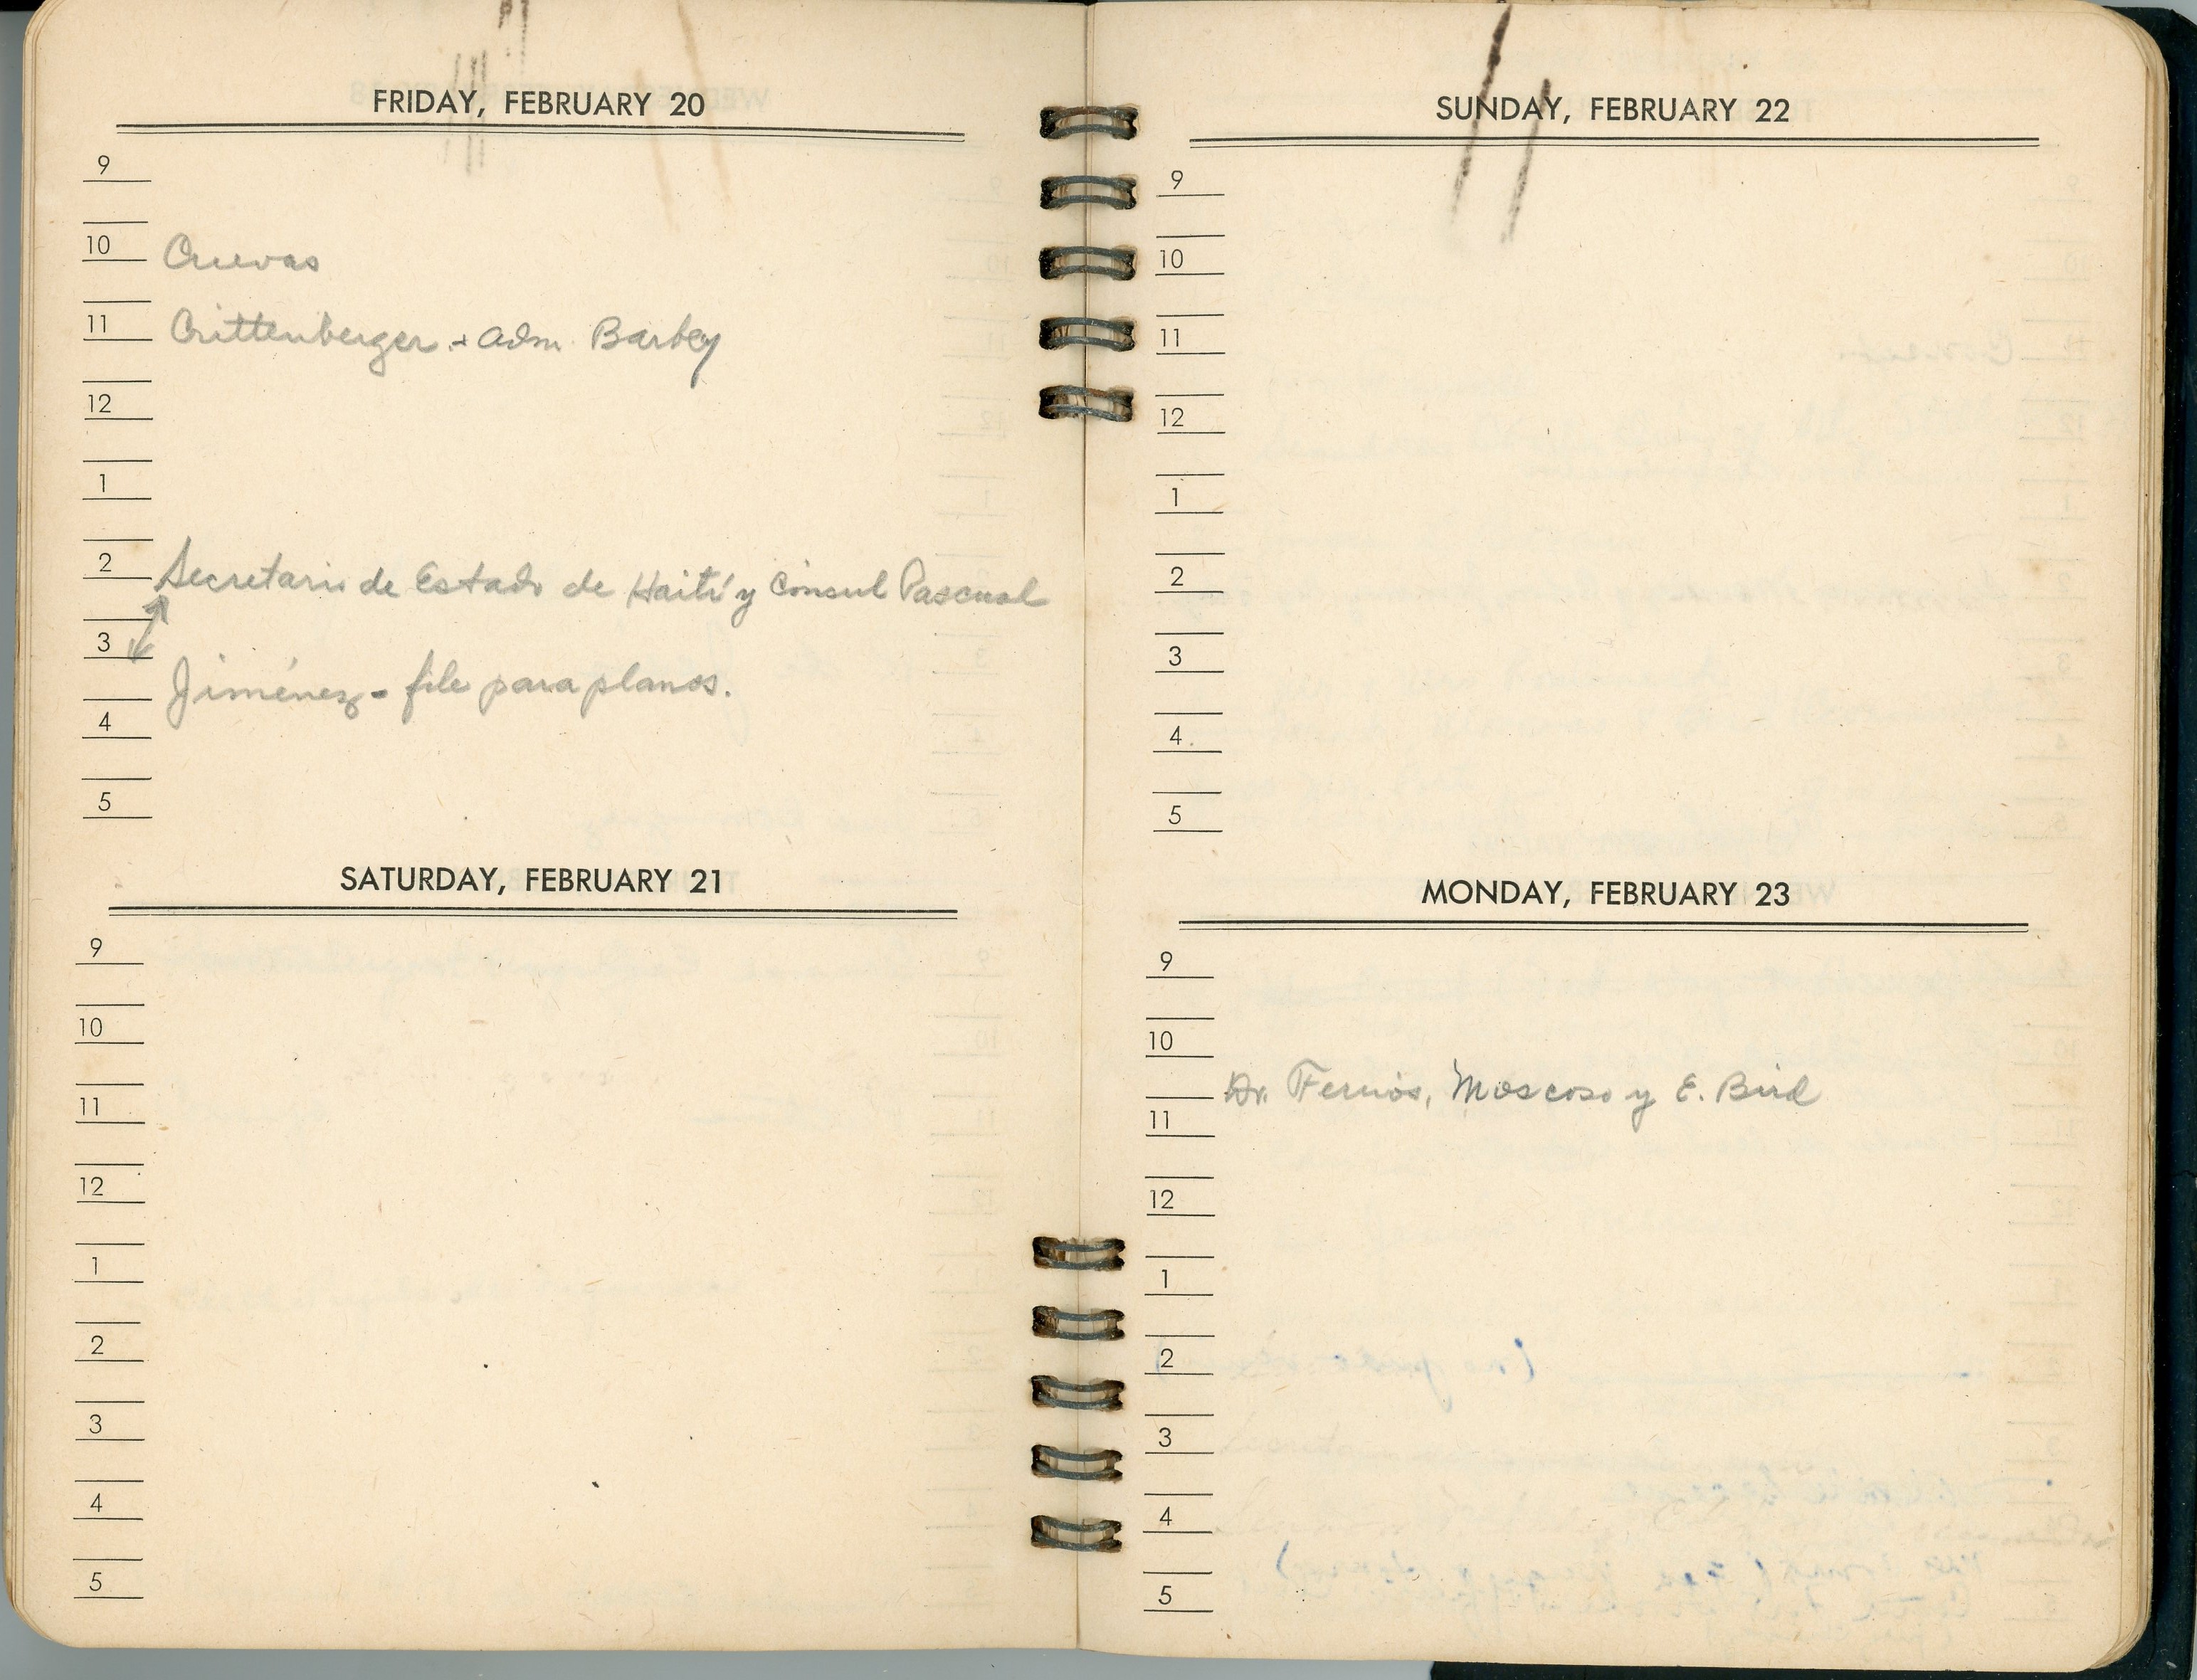 FRIDAY, FEBRUARY 20
9
10 Cuevas
11 Crittenberger + Adm. Barbey
12
1
2 Secretario de Estado de Haití y Cónsul Pascual
3
Jiménez - file para planos.
4
5
SATURDAY, FEBRUARY 21
9
10
11
12
1
2
3
4
5
SUNDAY, FEBRUARY 22
9
10
11
12
1
2
3
4
5
MONDAY, FEBRUARY 23
9
10
Dr. Fernós, Moscoso y E. Bird
11
12
1
2
3
4
5